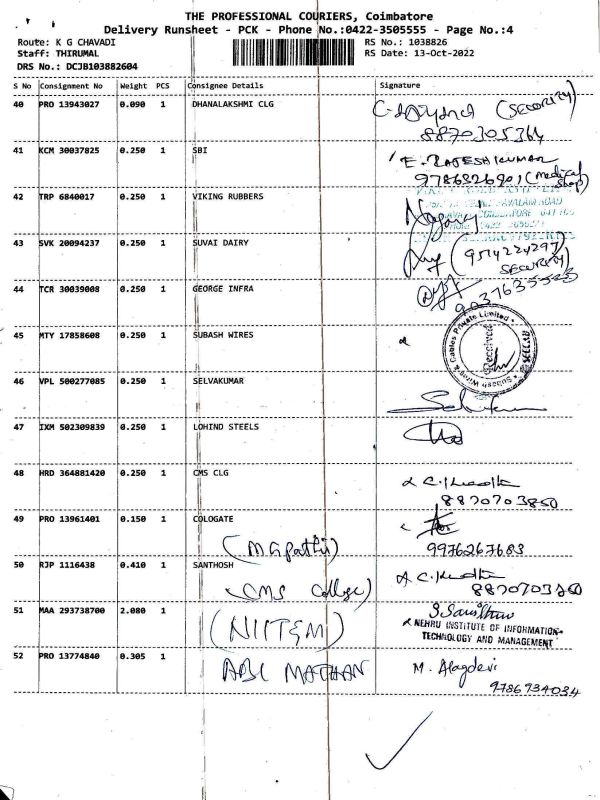 THE PROFESSIONAL COURIERS, Coimbatore
Delivery Runsheet - PCK - Phone No.:0422-3505555 - Page No.:4
Route: K G CHAVADI RS No.: 1038826
Staff: THIRUMAL RS Date: 13-Oct-2022
DRS No.: DCJB103882604
S No Consignment No Weight PCS Consignee Details Signature
40 PRO 13943027 0.090 1 DHANALAKSHMI CLG (SECURITY)
8870305364
41 KCM 30037825 0.250 1 SBI E. RAJESH KUMAR
9786326901 (medical shop)
42 TRP 6840017 0.250 1 VIKING RUBBERS
43 SVK 20094237 0.250 1 SUVAI DAIRY (9514224297)
SECURITY
44 TCR 30039008 0.250 1 GEORGE INFRA
45 MTY 17858608 0.250 1 SUBASH WIRES Subash Wires & Cables Private Limited
Received
46 VPL 500277085 0.250 1 SELVAKUMAR
47 IXM 502309839 0.250 1 LOHIND STEELS
48 HRD 364881420 0.250 1 CMS CLG
8870703850
49 PRO 13961401 0.150 1 COLOGATE
(M Gpathi) 9976267683
50 RJP 1116438 0.410 1 SANTHOSH
(CMS College) 8870703850
51 MAA 293738700 2.080 1
(NIITEM) NEHRU INSTITUTE OF INFORMATION
TECHNOLOGY AND MANAGEMENT
52 PRO 13774840 0.305 1 ABL MATHAN M. Alagdevi
9786934034